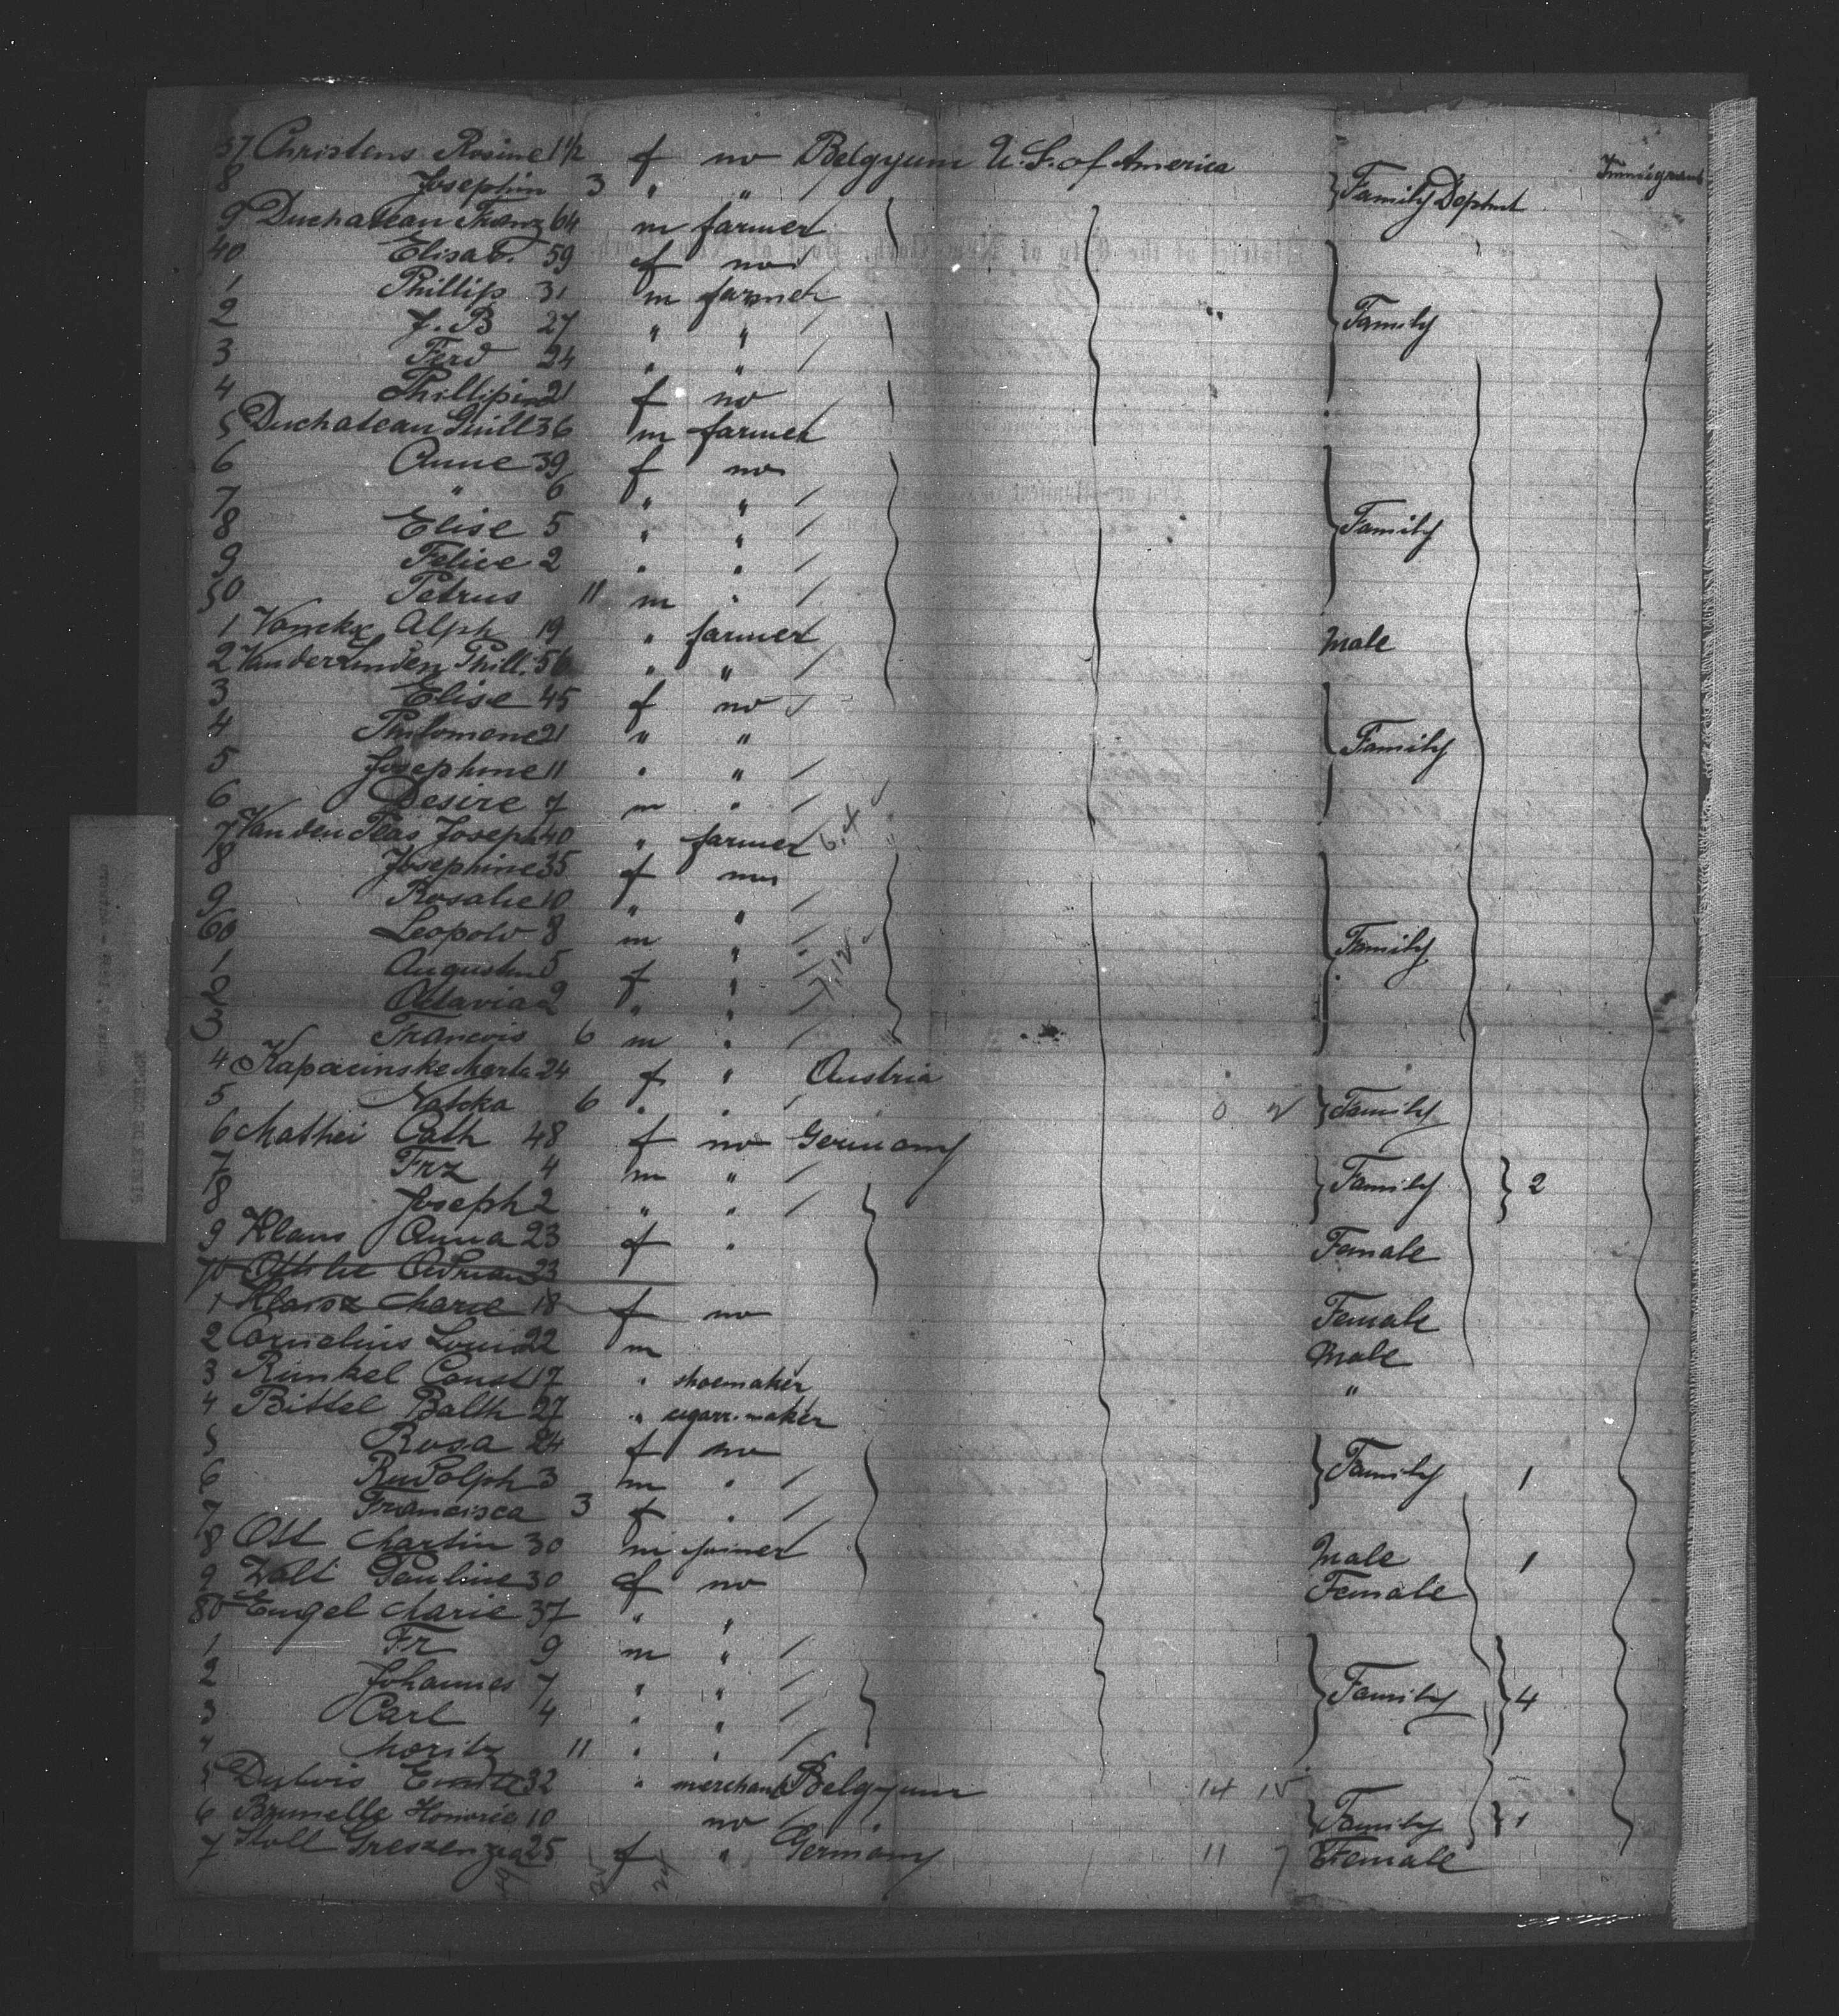 37 Christens Rosine 1 1/2 f no Belgyum U.S. of America Immigrant
8 Josephin 3 " " / Family Dephut
9 Duchateau Franz 64 m farmer
40 Elisab. 59 f no
1 Phillip 31 m farmer
2 J. B 27 " " / " Family
3 Ferd 24 " " /
4 Phillipine 21 f no
5 Duchateau Guill 36 m farmer
6 Anne 39 f no
7 " 6 " " /
8 Elise 5 " " / Family
9 Felice 2 " " /
50 Petrus 11 m " /
1 Alph 19 " farmer Male
2 VanderLinden Phill. 56 " " /
3 Elise 45 f no
4 Philomene 21 " " Family
5 Josephine 11 " " /
6 Desire 7 m " /
7 Vanden Joseph 40 " farmer
8 Josephine 35 f no
9 Rosalie 10 " " /
60 Leopold 8 m " / Family
1 Augustin 5 f " /
2 Octavia 2 " " /
3 Francois 6 m " /
4 Kapacinske Marta 24 f " Austria
5 6 " " / 0 2 Family
6 Mathei Cath 48 f no Germany
7 Frz 4 m " / Family 2
8 Joseph 2 " " /
9 Klaus Anna 23 f " Female
70 Adrian 23
1 Marie 18 f no Female
2 Cornelius Louis 22 m Male
3 Runkel Const 17 " shoemaker "
4 Bittel Balth 27 " cigarr. maker
5 Rosa 24 f no
6 Rudolph 3 m " / Family 1
7 Francisca 3 f " /
8 Ott Martin 30 m joiner Male 1
9 Walt Pauline 30 f no Female
80 Engel Marie 37 " "
1 Fr 9 m " /
2 Johannes 7 " " / Family 4
3 Carl 4 " " /
4 Moritz 11 " " /
5 32 " merchant Belgyum 14 15
6 Brunelle Honorie 10 no / " Family 1
7 Stoll Greszenzia 25 f " Germany 11 7 Female